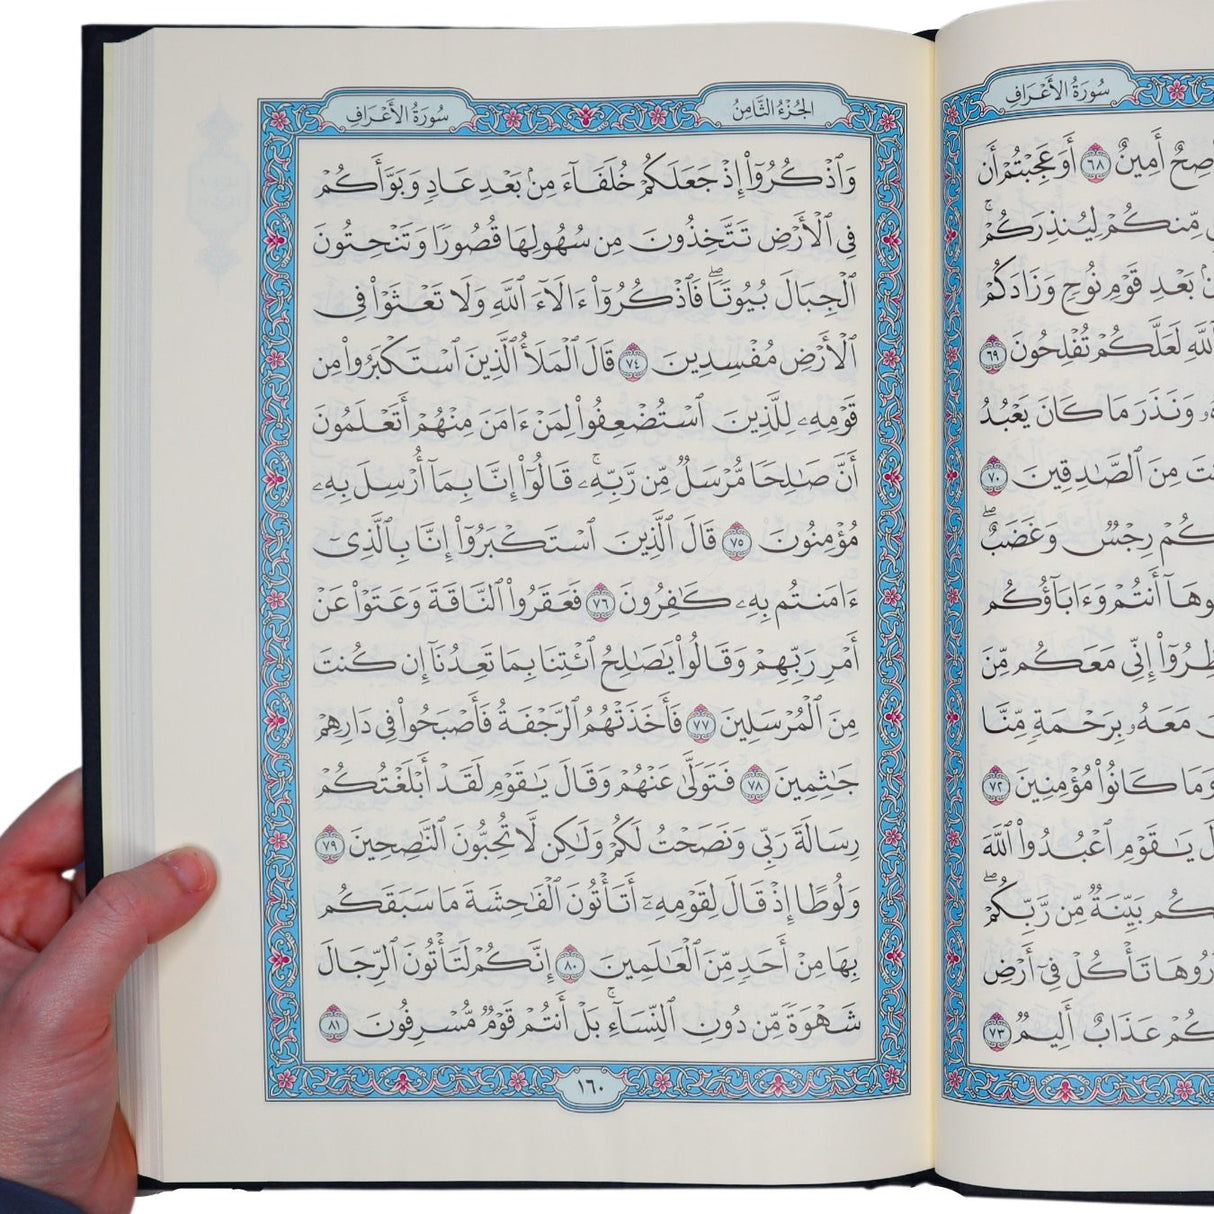 سُورَةُ الأَعْرَافِ
أَصِحٌ أَمِينٌ ٦٨ أَوَعَجِبْتُمْ أَن
مِّنكُمْ لِيُنذِرَكُمْ ۚ
بَعْدِ قَوْمِ نُوحٍ وَزَادَكُمْ
ٱللَّهِ لَعَلَّكُمْ تُفْلِحُونَ ٦٩
وَنَذَرَ مَا كَانَ يَعْبُدُ
مِنَ ٱلصَّٰدِقِينَ ٧٠
رِجْسٌ وَغَضَبٌ ۖ
أَنتُمْ وَءَابَآؤُكُم
إِنِّى مَعَكُم مِّنَ
مَعَهُۥ بِرَحْمَةٍ مِّنَّا
وَمَا كَانُوا۟ مُؤْمِنِينَ ٧٢
يَٰقَوْمِ ٱعْبُدُوا۟ ٱللَّهَ
بَيِّنَةٌ مِّن رَّبِّكُمْ ۖ
تَأْكُلْ فِىٓ أَرْضِ
عَذَابٌ أَلِيمٌ ٧٣
الجُزْءُ الثَّامِنُ سُورَةُ الأَعْرَافِ
وَٱذْكُرُوٓا۟ إِذْ جَعَلَكُمْ خُلَفَآءَ مِنۢ بَعْدِ عَادٍ وَبَوَّأَكُمْ
فِى ٱلْأَرْضِ تَتَّخِذُونَ مِن سُهُولِهَا قُصُورًا وَتَنْحِتُونَ
ٱلْجِبَالَ بُيُوتًا ۖ فَٱذْكُرُوٓا۟ ءَالَآءَ ٱللَّهِ وَلَا تَعْثَوْا۟ فِى
ٱلْأَرْضِ مُفْسِدِينَ ٧٤ قَالَ ٱلْمَلَأُ ٱلَّذِينَ ٱسْتَكْبَرُوا۟ مِن
قَوْمِهِۦ لِلَّذِينَ ٱسْتُضْعِفُوا۟ لِمَنْ ءَامَنَ مِنْهُمْ أَتَعْلَمُونَ
أَنَّ صَٰلِحًا مُّرْسَلٌ مِّن رَّبِّهِۦ ۚ قَالُوٓا۟ إِنَّا بِمَآ أُرْسِلَ بِهِۦ
مُؤْمِنُونَ ٧٥ قَالَ ٱلَّذِينَ ٱسْتَكْبَرُوٓا۟ إِنَّا بِٱلَّذِىٓ
ءَامَنتُم بِهِۦ كَٰفِرُونَ ٧٦ فَعَقَرُوا۟ ٱلنَّاقَةَ وَعَتَوْا۟ عَنْ
أَمْرِ رَبِّهِمْ وَقَالُوا۟ يَٰصَٰلِحُ ٱئْتِنَا بِمَا تَعِدُنَآ إِن كُنتَ
مِنَ ٱلْمُرْسَلِينَ ٧٧ فَأَخَذَتْهُمُ ٱلرَّجْفَةُ فَأَصْبَحُوا۟ فِى دَارِهِمْ
جَٰثِمِينَ ٧٨ فَتَوَلَّىٰ عَنْهُمْ وَقَالَ يَٰقَوْمِ لَقَدْ أَبْلَغْتُكُمْ
رِسَالَةَ رَبِّى وَنَصَحْتُ لَكُمْ وَلَٰكِن لَّا تُحِبُّونَ ٱلنَّٰصِحِينَ ٧٩
وَلُوطًا إِذْ قَالَ لِقَوْمِهِۦٓ أَتَأْتُونَ ٱلْفَٰحِشَةَ مَا سَبَقَكُم
بِهَا مِنْ أَحَدٍ مِّنَ ٱلْعَٰلَمِينَ ٨٠ إِنَّكُمْ لَتَأْتُونَ ٱلرِّجَالَ
شَهْوَةً مِّن دُونِ ٱلنِّسَآءِ ۚ بَلْ أَنتُمْ قَوْمٌ مُّسْرِفُونَ ٨١
١٦٠